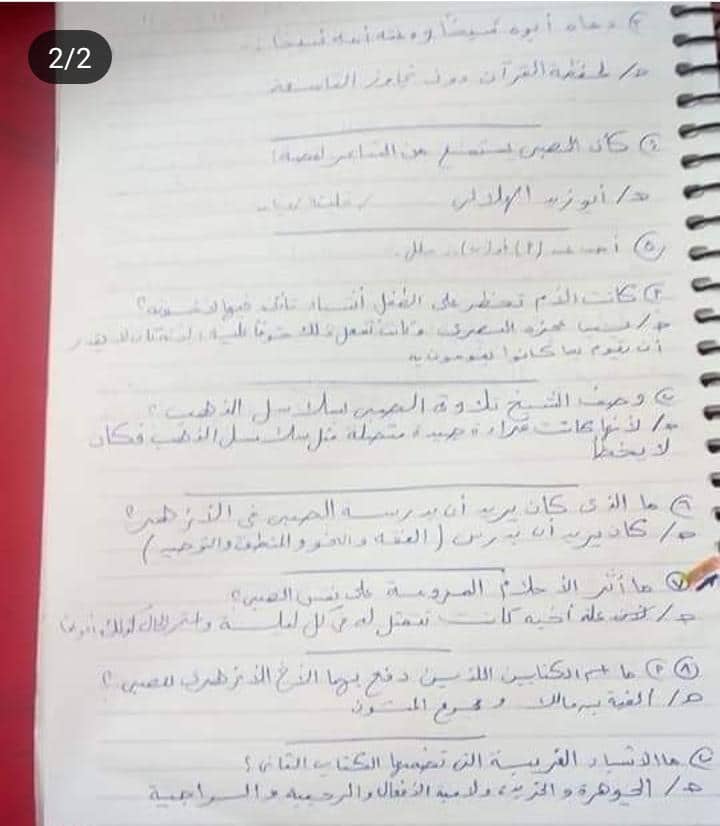 2/2
٣ دعاه أبوه شيخا ودعته أمه شيخا
ج/ لحفظه القرآن دون تجاوز التاسعة
٤ كان الصبي يستمع من الشاعر لقصة
ج/ أبو زيد الهلالي
٥ أجب عن (٢) علل
٢ كانت الأم تحظر على الطفل أشياء
أن يقوم بما كانوا يقومون به
ب وصف الشيخ تلاوة الصبى بسلاسل الذهب؟
ج/ لأنها كانت قراءة جيدة متصلة مثل سلاسل الذهب فكان
لا يخطأ
٦ ما الذى كان يريد أن يدرسه الصبى فى الأزهر؟
ج/ كان يريد أن يدرس (الفقه والنحو والمنطق والتوحيد)
٧ ما أثر الأحلام المروعة على نفس الصبى؟
ج/ علة أخيه كانت تتمثل له فى كل ليلة واستمر الحال كذلك
٨ ٢ ما اسم الكتابين اللذين دفع بهما الأخ الأزهرى للصبى؟
ج/ ألفية بن مالك و مجموع المتون
ب ما الأشياء الغريبة التى تضمنها الكتاب الثانى؟
ج/ الجوهرة والخريدة ولامية الأفعال والرحبية والسراجية